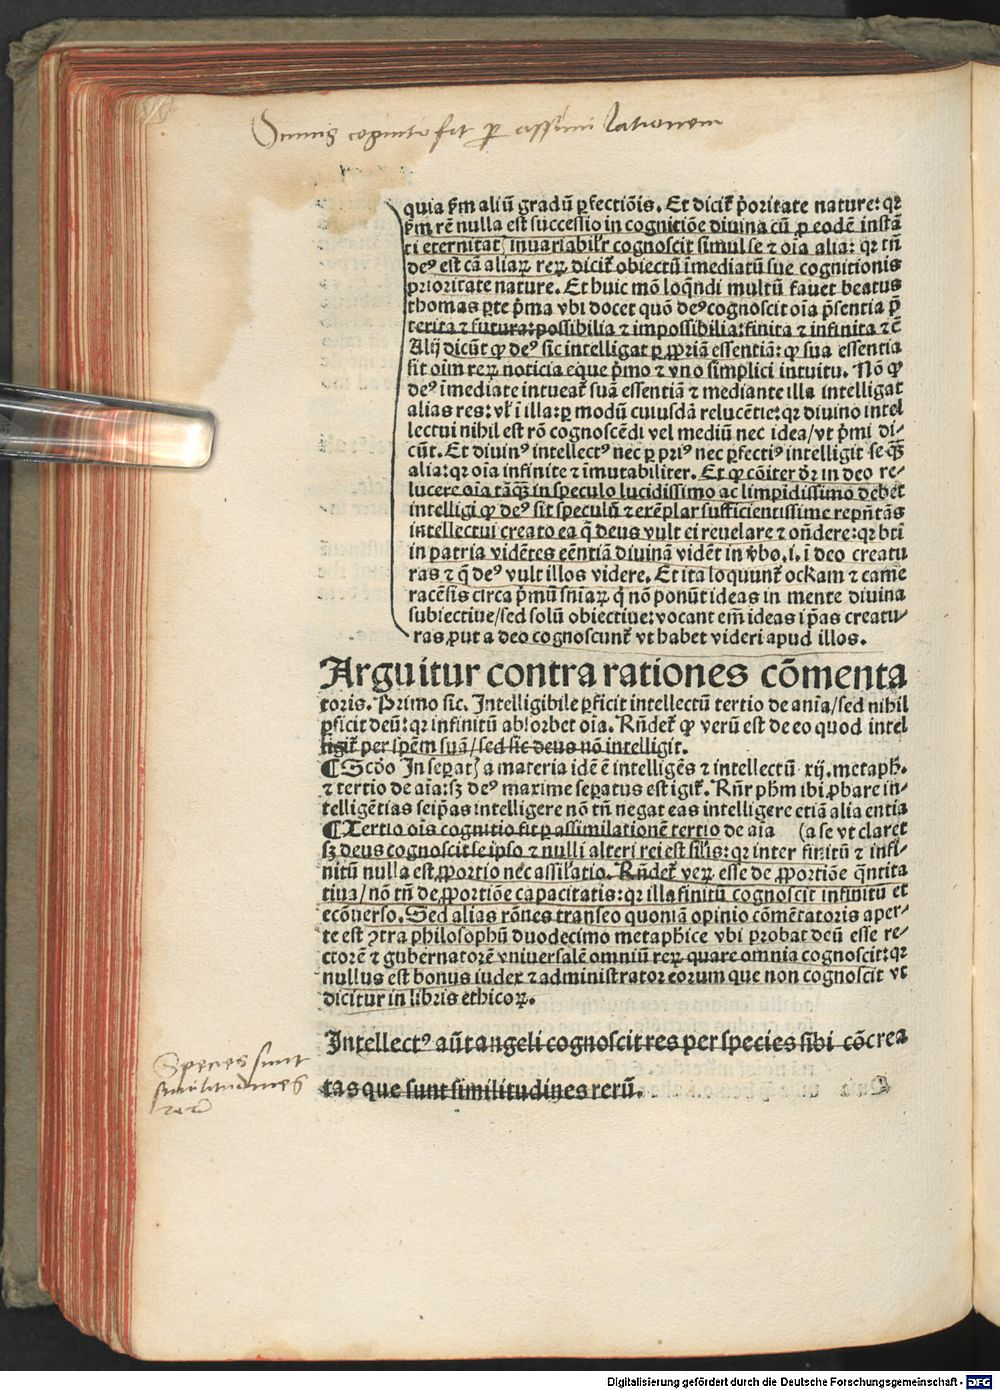 Omnis cognitio fit ꝑ assimilationem
quia ẜm aliū gradū ꝑfectiōis. Et dicit̃ p̃oritate nature: qꝛ
ẜm rē nulla est successio in cognitiōe diuina cū ꝓ eodē instā
ti eternitat᷒ inuariabilr̃ cognoscit simul se ⁊ oīa alia: qꝛ tñ
deꝰ est cā aliaꝝ reꝝ dicit̃ obiectū īmediatū sue cognitionis
prioritate nature. Et huic mō loq̄ndi multū fauet beatus
thomas ꝑte p̃ma vbi docet quō deꝰ cognoscit oīa p̃sentia p̄
terita ⁊ futura: possibilia ⁊ impossibilia: finita ⁊ infinita ⁊c̄
Alij dicūt ꝙ deꝰ sic intelligat ꝑ ꝓpriā essentiā: ꝙ sua essentia
sit oīm reꝝ noticia eque p̃mo ⁊ vno simplici intuitu. Nō ꝙ
deꝰ īmediate intueat̃ suā essentiā ⁊ mediante illa intelligat
alias res: vl̃ ī illa: ꝑ modū cuiusdā relucētie: qꝛ diuino intel
lectui nihil est rō cognoscēdi vel mediū nec idea/ vt p̃mi di-
cūt. Et diuinꝰ intellectꝰ nec ꝑ priꝰ nec ꝑfectiꝰ intelligit se q̄ꝫ
alia: qꝛ oīa infinite ⁊ īmutabiliter. Et ꝙ cōiter dr̄ in deo re-
lucere oīa tāꝙ̄ in speculo lucidissimo ac limpidissimo debet
intelligi ꝙ deꝰ sit speculū ⁊ exēplar sufficientissime repñtās
intellectui creato ea q̄ deus vult ei reuelare ⁊ oñdere: qꝛ bt̄i
in patria vidētes eēntiā diuinā vidēt in v̄bo .i. ī deo creatu
ras ⁊ q̄ deꝰ vult illos videre. Et ita loquunt̃ ockam ⁊ came
racēsis circa p̃mū sn̄iaꝝ q̄ nō ponūt ideas in mente diuina
subiectiue/ sed solū obiectiue: vocant em̄ ideas ip̄as creatu-
ras ꝓut a deo cognoscunt̃ vt habet videri apud illos.
Arguitur contra rationes cōmenta
toris. Primo sic. Intelligibile ꝑficit intellectū tertio de anīa/ sed nihil
ꝑficit deū: qꝛ infinitū absorbet oīa. Rñdet̃ ꝙ verū est de eo quod intel
ligit̃ per spēm suā/ sed sic deus nō intelligit.
¶ Scďo In seꝑat᷒ a materia idē ē intelligēs ⁊ intellectū xij. metaph̄.
⁊ tertio de aīa: sꝫ deꝰ maxime seꝑatus est igit̃. Rñr ph̄m ibi ꝓbare in-
telligētias seip̄as intelligere nō tñ negat eas intelligere etiā alia entia
¶ Tertio oīs cognitio fit ꝑ assimilationē tertio de aīa (a se vt claret
sꝫ deus cognoscit se ipso ⁊ nulli alteri rei est sil̄is: qꝛ inter finitū ⁊ infi-
nitū nulla est ꝓportio nec assil̄atio. Rñdet̃ veꝝ esse de ꝓportiōe q̄ntita
tiua/ nō tñ de ꝓportiōe capacitatis: qꝛ illa finitū cognoscit infinitū et
ecōuerso. Sed alias rōnes transeo quoniā opinio cōmētatoris aper-
te est ꝯtra philosophū duodecimo metaph̄ice vbi probat deū esse re-
ctorē ⁊ gubernatorē vniuersalē omniū reꝝ quare omnia cognoscit: qꝛ
nullus est bonus iudex ⁊ administrator eorum que non cognoscit vt
dicitur in libris ethicoꝝ.
Intellectꝰ aūt angeli cognoscit res per species sibi cōcrea
tas que sunt similitudines rerū.
Species sunt
similitudines
rerū
Digitalisierung gefördert durch die Deutsche Forschungsgemeinschaft - DFG